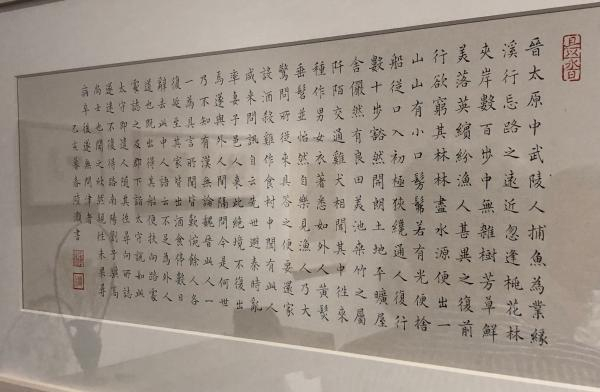 晉太原中武陵人捕魚為業緣
溪行忘路之遠近忽逢桃花林
夾岸數百步中無雜樹芳草鮮
美落英繽紛漁人甚異之復前
行欲窮其林林盡水源便出一
山山有小口髣髴若有光便捨
船從口入初極狹纔通人復行
數十步豁然開朗土地平曠屋
舍儼然有良田美池桑竹之屬
阡陌交通雞犬相聞其中往來
種作男女衣著悉如外人黃髮
垂髫並怡然自樂見漁人乃大
驚問所從來具答之便要還家
設酒殺雞作食村中聞有此人
咸來問訊自云先世避秦時亂
率妻子邑人來此絕境不復出
焉遂與外人間隔問今是何世
乃不知有漢無論魏晉此人一
一為具言所聞皆歎惋餘人各
復延至其家皆出酒食停數日
辭去此中人語云不足為外人
道也既出得其船便扶向路處
處誌之及郡下詣太守說如此
太守即遣人隨其往尋向所誌
遂迷不復得路南陽劉子驥高
尚士也聞之欣然親往未果尋
病卒後遂無問津者
己亥暮春陸灝書